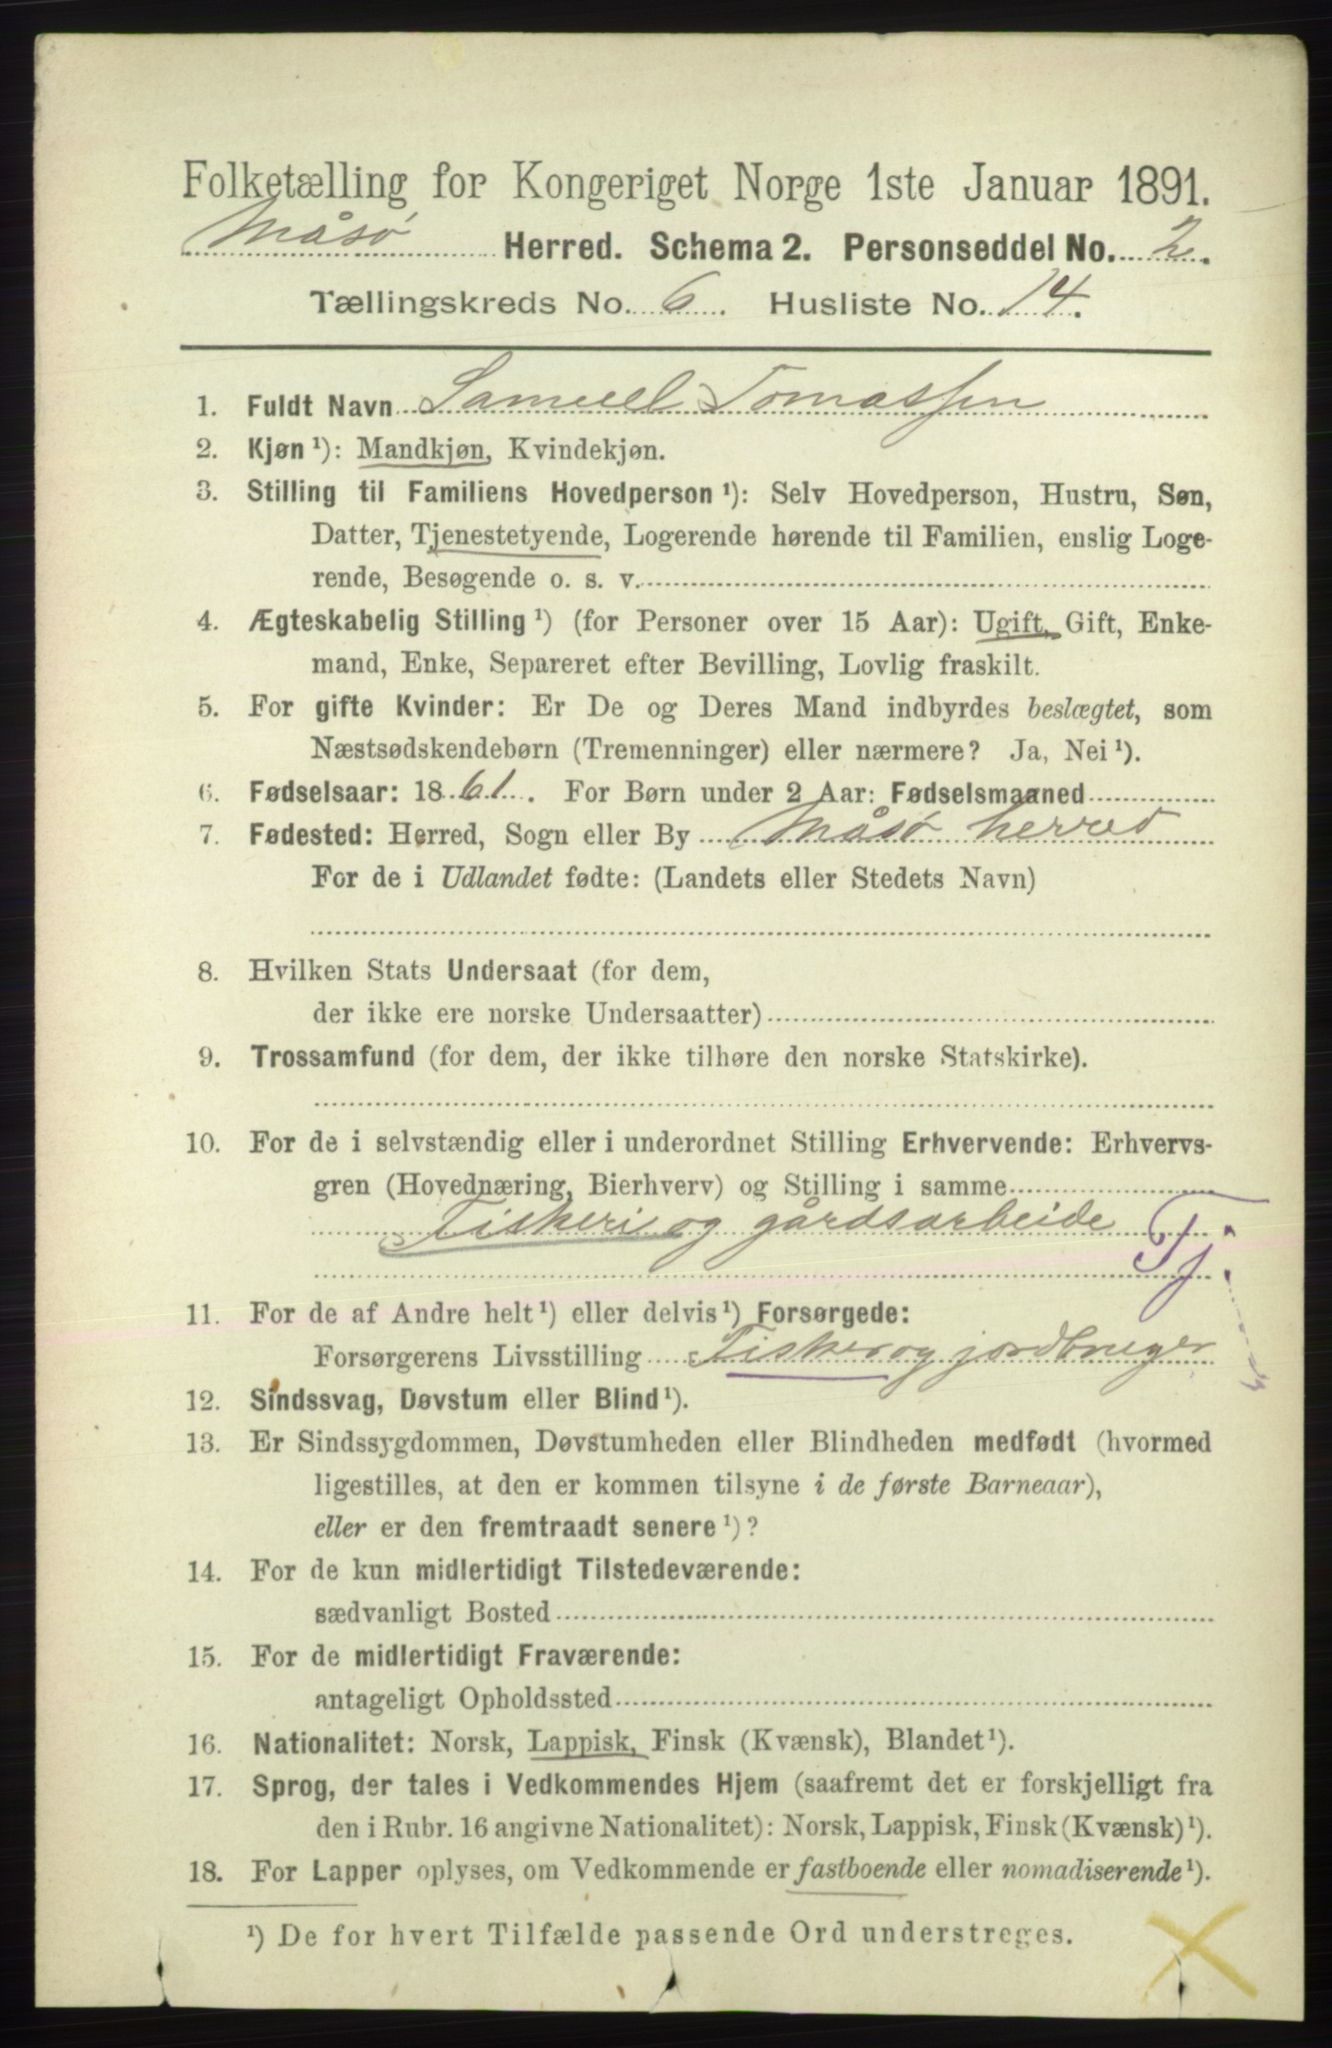 Folketælling for Kongeriget Norge 1ste Januar 1891.
Måsø Herred. Schema 2. Personseddel No. 2.
Tællingskreds No. 6. Husliste No. 14.
1. Fuldt Navn Samuel Tomassen
2. Kjøn ¹): Mandkjøn, Kvindekjøn.
3. Stilling til Familiens Hovedperson ¹): Selv Hovedperson, Hustru, Søn,
Datter, Tjenestetyende, Logerende hørende til Familien, enslig Loge-
rende, Besøgende o. s. v.
4. Ægteskabelig Stilling ¹) (for Personer over 15 Aar): Ugift, Gift, Enke-
mand, Enke, Separeret efter Bevilling, Lovlig fraskilt.
5. For gifte Kvinder: Er De og Deres Mand indbyrdes beslægtet, som
Næstsødskendebørn (Tremenninger) eller nærmere? Ja, Nei ¹).
6. Fødselsaar: 1861. For Børn under 2 Aar: Fødselsmaaned
7. Fødested: Herred, Sogn eller By Måsø herred
For de i Udlandet fødte: (Landets eller Stedets Navn)
8. Hvilken Stats Undersaat (for dem,
der ikke ere norske Undersaatter)
9. Trossamfund (for dem, der ikke tilhøre den norske Statskirke).
10. For de i selvstændig eller i underordnet Stilling Erhvervende: Erhvervs-
gren (Hovednæring, Bierhverv) og Stilling i samme
Fiskeri og gårdsarbeide
Tj.
11. For de af Andre helt ¹) eller delvis ¹) Forsørgede:
Forsørgerens Livsstilling Fisker og jordbruger
12. Sindssvag, Døvstum eller Blind ¹).
13. Er Sindssygdommen, Døvstumheden eller Blindheden medfødt (hvormed
ligestilles, at den er kommen tilsyne i de første Barneaar),
eller er den fremtraadt senere ¹)?
14. For de kun midlertidigt Tilstedeværende:
sædvanligt Bosted
15. For de midlertidigt Fraværende:
antageligt Opholdssted
16. Nationalitet: Norsk, Lappisk, Finsk (Kvænsk), Blandet ¹).
17. Sprog, der tales i Vedkommendes Hjem (saafremt det er forskjelligt fra
den i Rubr. 16 angivne Nationalitet): Norsk, Lappisk, Finsk (Kvænsk) ¹).
18. For Lapper oplyses, om Vedkommende er fastboende eller nomadiserende ¹).
¹) De for hvert Tilfælde passende Ord understreges.